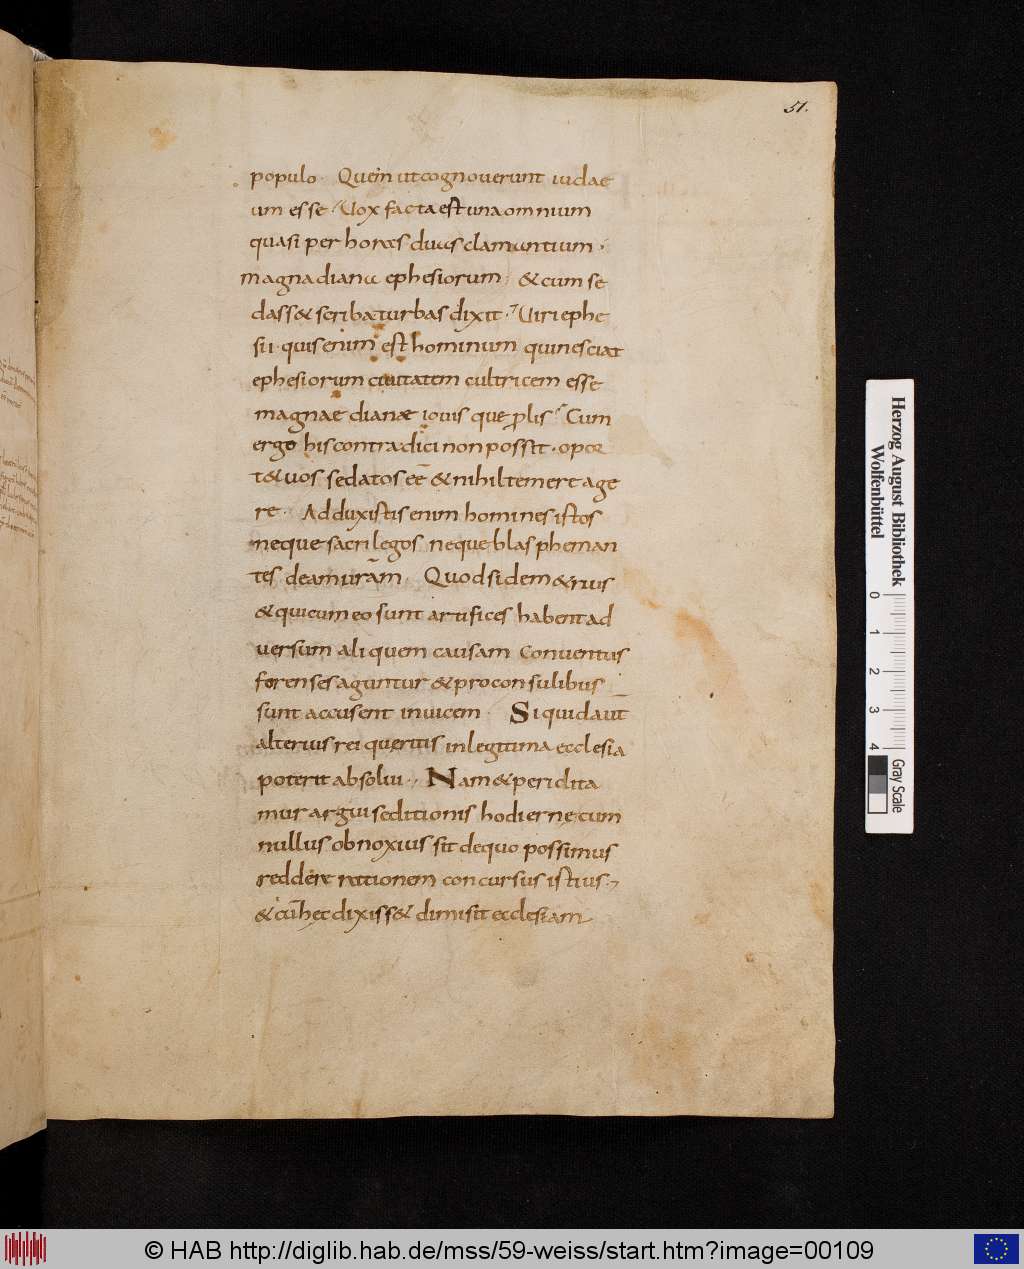 51.
populo. Quem ut cognouerunt iudae
um esse. Uox facta est una omnium
quasi per horas duas clamantium.
magna diana ephesiorum. & cum se
dass& scriba turbas dixit. Uiri ephe
sii. quis enim est hominum qui nesciat
ephesiorum ciuitatem cultricem esse
magnae dianae iouis que ꝓlis. Cum
ergo his contradici non possit. opor
t& uos sedatos eē & nihil temere age
re. Adduxistis enim homines istos
neque sacrilegos neque blas pheman
tes deam urām. Quod si demetrius
& qui cum eo sunt artifices habent ad
uersum ali quem causam Conuentus
forenses aguntur & proconsulibus
sunt accusent inuicem. Si quid aut̄
alterius rei queritis in legitima ecclesia
poterit absolui. Nam & peridita
mur argui seditionis hodiernę cum
nullus obnoxius sit de quo possimus
reddere rationem concursus istius.
& cū hęc dixiss& dimisit ecclesiam
Herzog August Bibliothek
Wolfenbüttel
0 1 2 3 4
Gray Scale
© HAB http://diglib.hab.de/mss/59-weiss/start.htm?image=00109